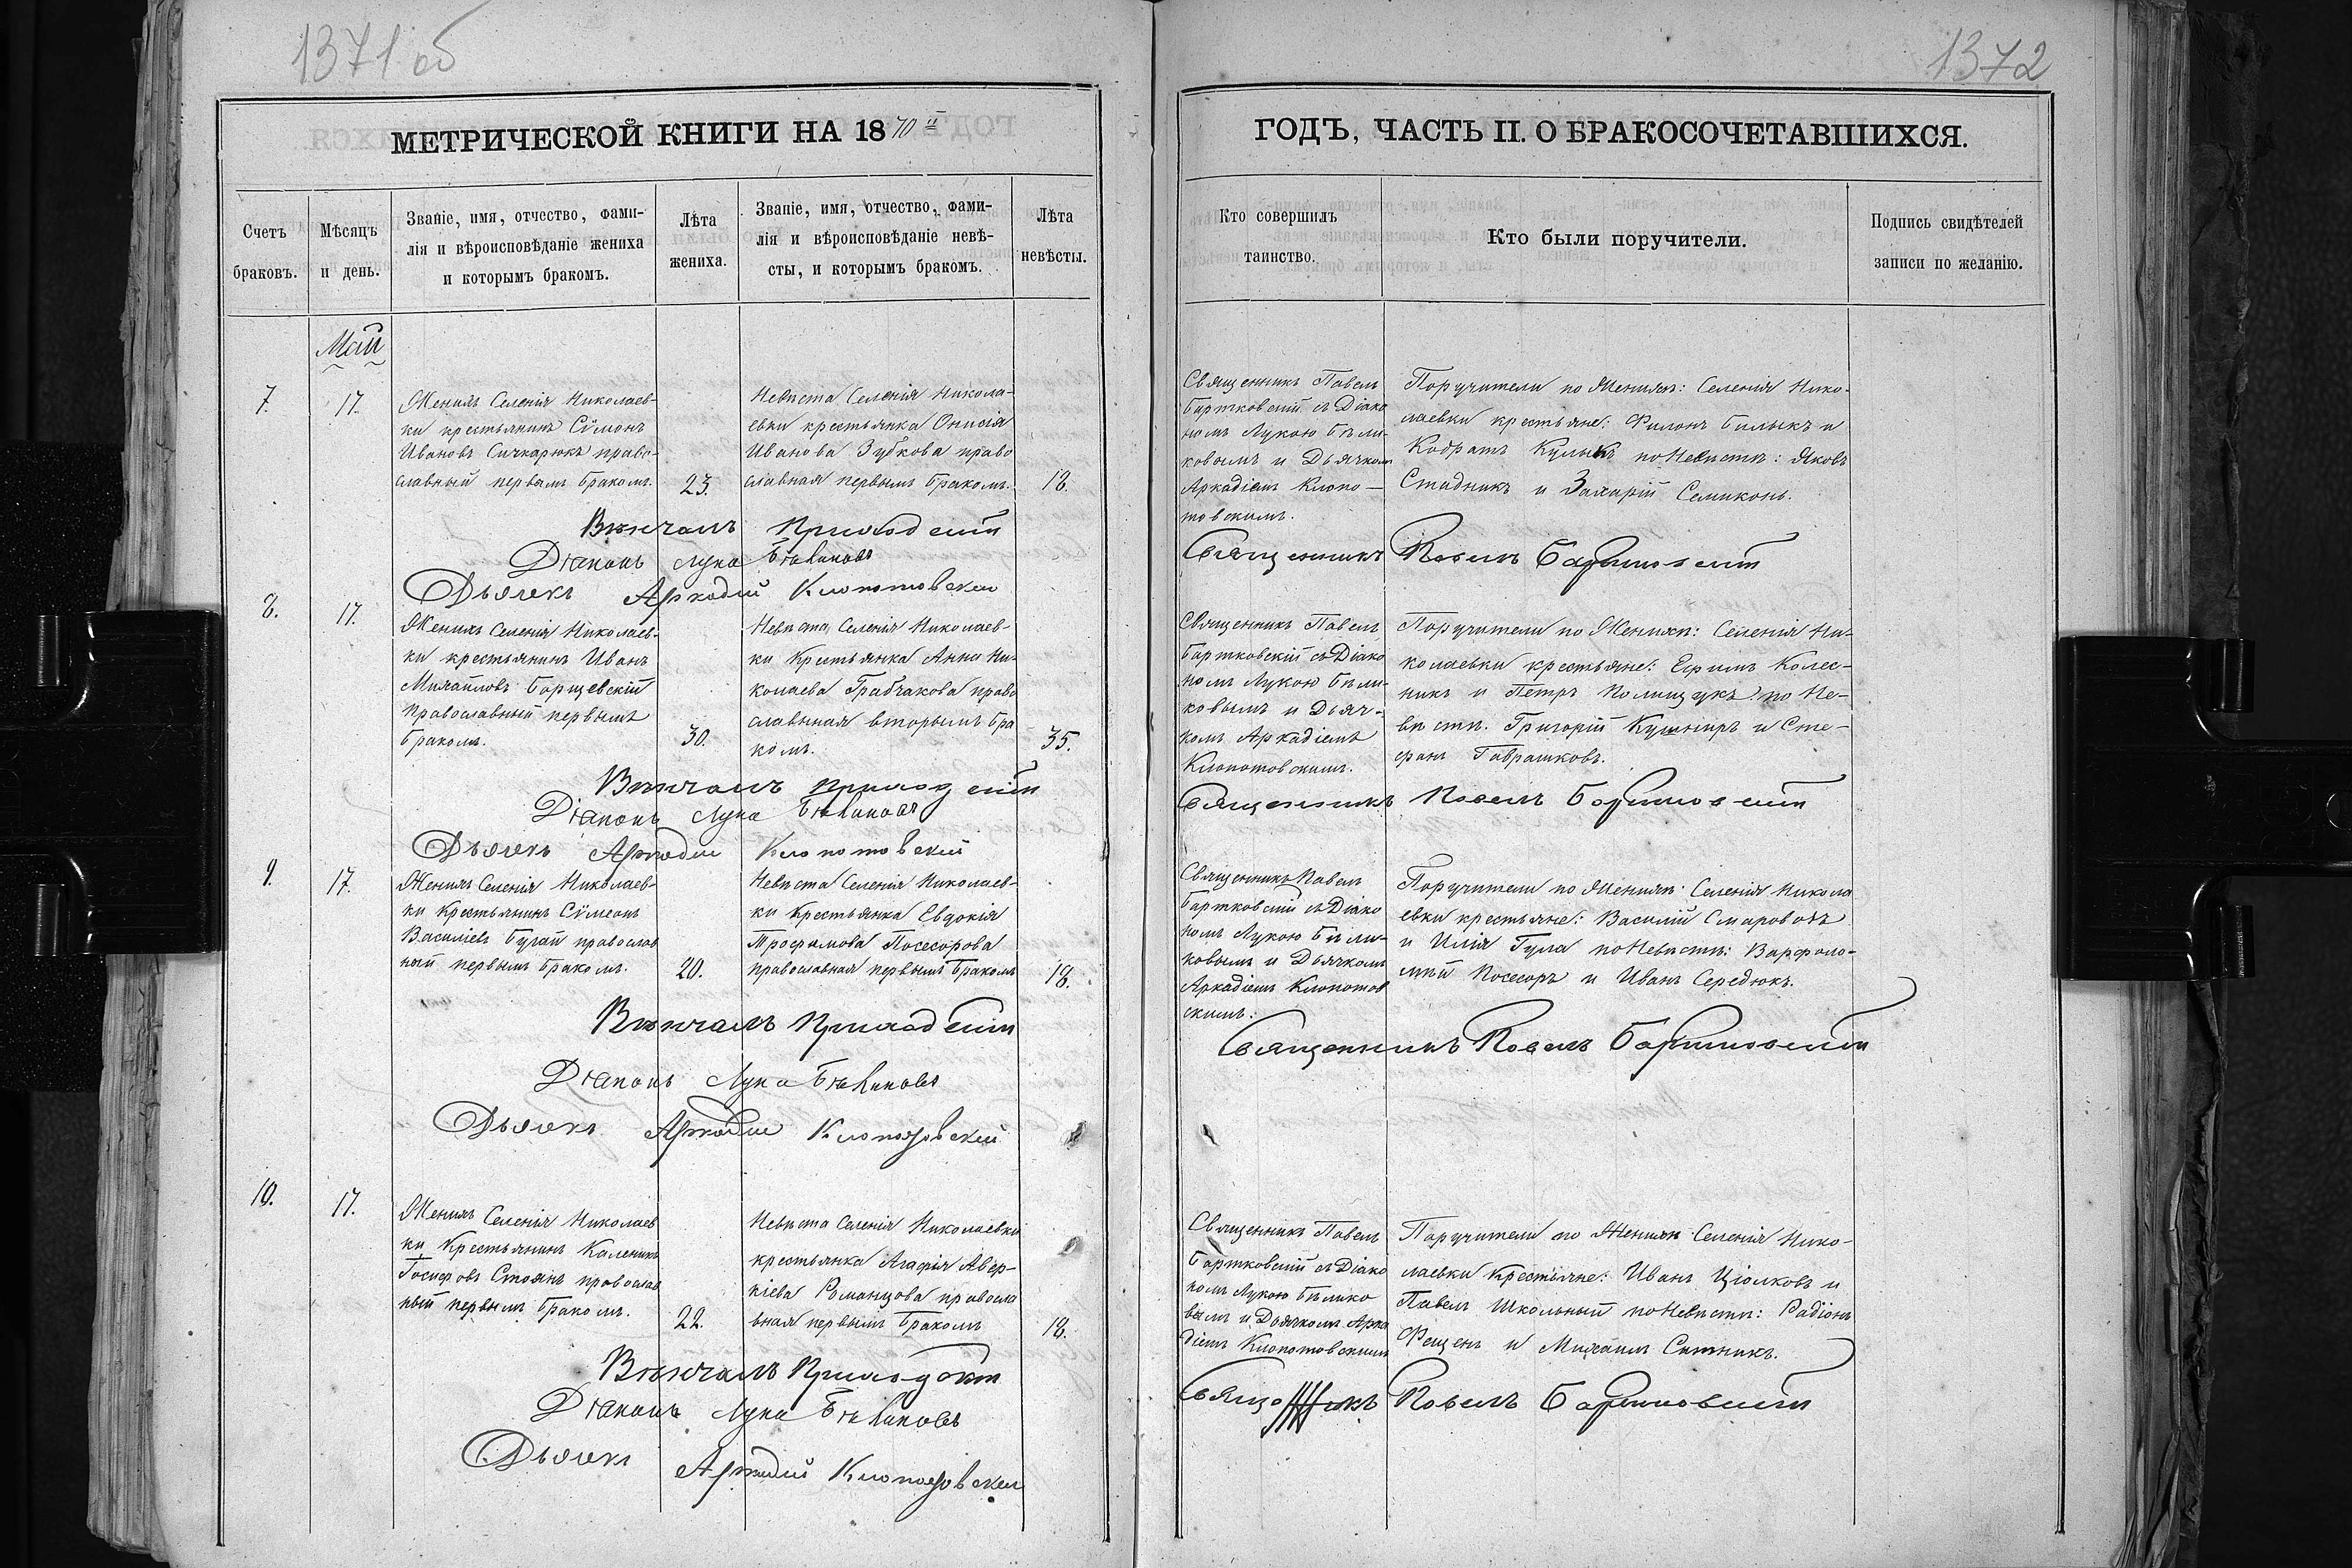 1371 об
1372
МЕТРИЧЕСКОЙ КНИГИ НА 1870й
ГОДЪ, ЧАСТЬ II. О БРАКОСОЧЕТАВШИХСЯ.
Счетъ
браковъ.
Мѣсяцъ
и день.
Званіе, имя, отчество, фами-
лія и вѣроисповѣданіе жениха
и которымъ бракомъ.
Лѣта
жениха.
Званіе, имя, отчество, фами-
лія и вѣроисповѣданіе невѣ-
сты, и которымъ бракомъ.
Лѣта
невѣсты.
Кто совершилъ
таинство.
Кто были поручители.
Подпись свидѣтелей
записи по желанію.
Май
7.
17.
Женихъ Селенія Николаев-
ки крестьянинъ Сѵмонъ
Ивановъ Сичкарюкъ право-
славный первымъ бракомъ.
23.
Невѣста Селенія Никола-
евки крестьянка Онисія
Иванова Зубкова право
славная первымъ бракомъ.
18.
Священникъ Павелъ
Бартковскій съ Діако
номъ Лукою Бѣли-
ковымъ и Дьячком
Аркадіемъ Клопо-
товскимъ.
Поручители по Женихѣ: Селенія Нико-
лаевки крестьяне: Филонъ Билыкъ и
Кодратъ Кулыкъ по Невѣстѣ: Яковъ
Стадникъ и Захарій Семиконь.
Вѣнчалъ Приходскій
Священникъ Павелъ Бартковскій
Діаконъ Лука Бѣликовъ
Дьячекъ Аркадій Клопотовскій
8.
17.
Женихъ Селенія Николаев-
ки крестьянинъ Иванъ
Михайловъ Борщевскій
православный первымъ
бракомъ.
30.
Невѣста, Селенія Николаев-
ки Крестьянка Анна Ни-
колаева Грабчакова право
славная вторымъ бра
комъ.
35.
Священникъ Павелъ
Бартковскій съ Діако
номъ Лукою Бѣли-
ковымъ и Дьяч-
комъ Аркадіемъ
Клопотовскимъ.
Поручители по Женихѣ: Селенія Ни-
колаевки крестьяне: Ефимъ Колес-
никъ и Петръ Полищукъ: по Не-
вѣстѣ. Григорій Кушниръ и Сте-
фанъ Гаврашковъ.
Вѣнчалъ Приходскій
Священникъ Павелъ Бартковскій
Діаконъ Лука Бѣликовъ
Дьячекъ Аркадій Клопотовскій
9.
17.
Женихъ Селенія Николаев-
ки Крестьянинъ Сѵмеонъ
Василіевъ Бугай православ
ный первымъ бракомъ.
20.
Невѣста Селенія Николаев-
ки Крестьянка Евдокія
Трофимова Посесорова
православная первымъ бракомъ
18.
Священникъ Павелъ
Бартковскій съ Діако
номъ Лукою Бѣли-
ковымъ и Дьячкомъ
Аркадіемъ Клопотов
скимъ.
Поручители по Женихѣ: Селенія Никола
евки крестьяне: Василій Смаровозъ
и Илія Гула по Невѣстѣ: Варфоло-
мѣй Посесоръ и Иванъ Середюкъ.
Вѣнчалъ Приходскій
Священникъ Павелъ Бартковскій
Діаконъ Лука Бѣликовъ
Дьячекъ Аркадій Клопотовскій
10.
17.
Женихъ Селенія Николаев
ки Крестьянинъ Каленикъ
Іосифовъ Стоянъ православ
ный первымъ бракомъ.
22.
Невѣста Селенія Николаевки
крестьянка Агафія Авер-
кіева Романцова правосла
вная первымъ бракомъ
18.
Священникъ Павелъ
Бартковскій съ Діако
номъ Лукою Бѣлико
вымъ и Дьячкомъ Арка
діемъ Клопотовскимъ
Поручители по Женихѣ Селенія Нико-
лаевки Крестьяне: Иванъ Ціолковъ и
Павелъ Школьный по Невѣстѣ: Радіонъ
Фещенъ и Михаилъ Ситникъ.
Вѣнчалъ Приходскій
Священникъ Павелъ Бартковскій
Діаконъ Лука Бѣликовъ
Дьячекъ Аркадій Клопотовскій